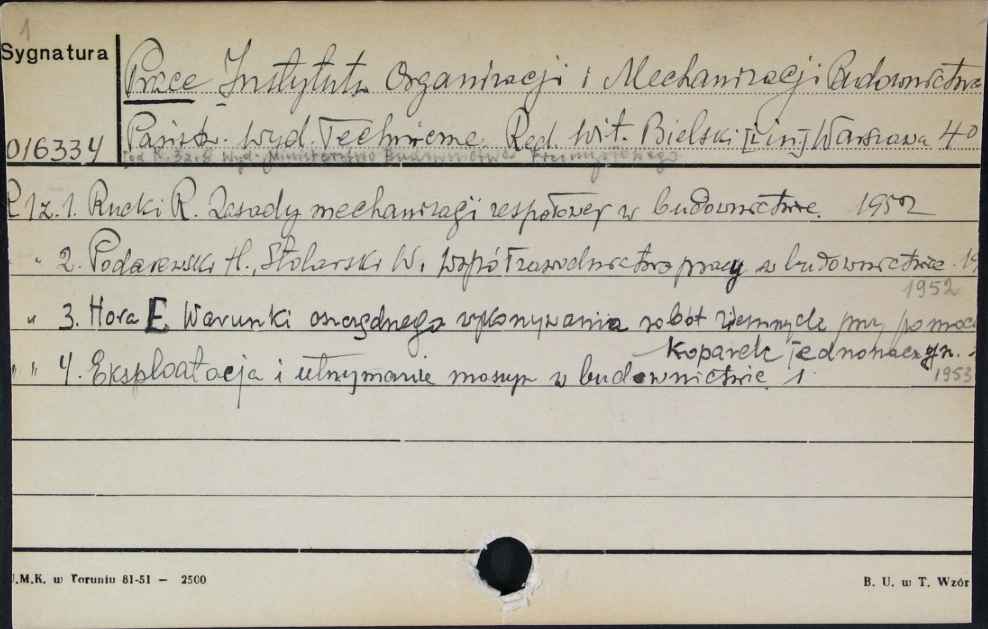 1
Sygnatura
Prace Instytutu Organizacji i Mechanizacji Budownictwa
Państw. Wyd. Techniczne. Red. Wit. Bielski [i in] Warszawa 4º
016334
od R. 3z.8 Wyd. Ministerstwo Budownictwa Przemysłowego
R 1 z. 1. Rucki R. Zasady mechanizacji zespołowej w budownictwie. 1952
" 2. Podarewski H., Stolarski W. Współzawodnictwo pracy w budownictwie. 19
1952
" 3. Hora E. Warunki oszczędnego wykonywania robót ziemnych przy pomocy
koparek jednonaczyn.
" " 4. Eksploatacja i utrzymanie maszyn w budownictwie 1
1953
U.M.K. w Toruniu 81-51 — 2500
B. U. w T. Wzór